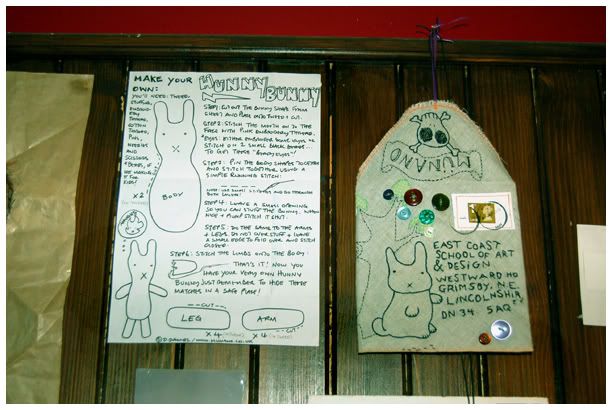 MAKE YOUR
OWN:
HUNNY
BUNNY
YOU'LL NEED: TWEED,
STUFFING,
THREAD,
COTTON
THREAD,
PINS,
NEEDLES
AND
SCISSORS
+ BEADS, IF
x 2
BODY
STEP 1: CUT OUT THE BUNNY SHAPE FROM
SHEET AND PLACE ONTO TWEED + CUT.
STEP 2: STITCH THE MOUTH ON TO THE
FACE WITH PINK EMBROIDERY THREAD.
STITCH ON 2 SMALL BLACK BEADS
STEP 3: PIN THE BODY SHAPES TOGETHER
AND STITCH TOGETHER USING A
SIMPLE RUNNING STITCH:
STEP 4: LEAVE A SMALL OPENING
SO YOU CAN STUFF THE BUNNY.
STEP 5: DO THE SAME TO THE ARMS
+ LEGS. DO NOT OVER STUFF + LEAVE
A SMALL EDGE TO FOLD OVER AND STITCH
CLOSED.
STEP 6: STITCH THE LIMBS ONTO THE BODY.
THAT'S IT! NOW YOU
HAVE YOUR VERY OWN HUNNY
BUNNY JUST REMEMBER TO HIDE THOSE
MATCHES IN A SAFE PLACE!
CUT
CUT
LEG
ARM
x 4
x 4
MUNANO
EAST COAST
SCHOOL OF ART
& DESIGN
WESTWARD HO
GRIMSBY, N.E.
LINCOLNSHIR,
DN 34 5AQ